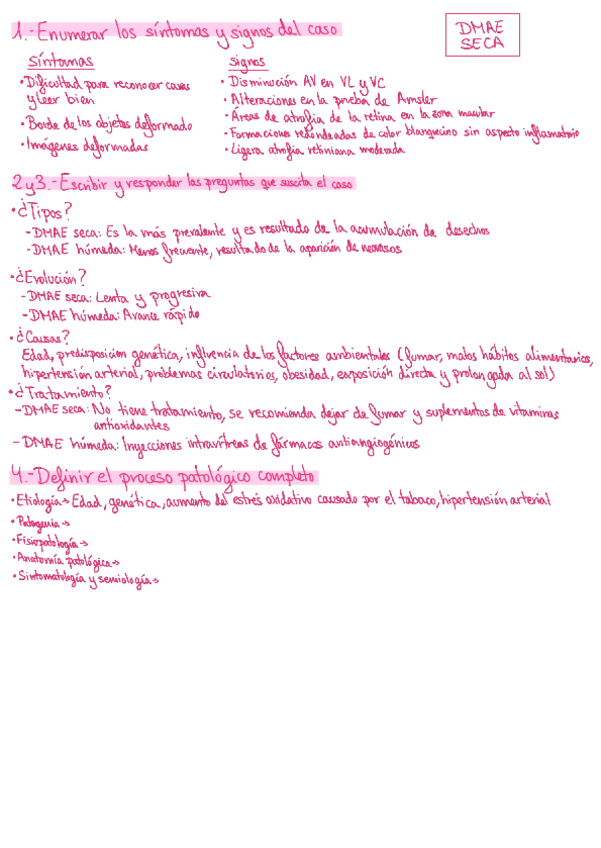 1.- Enumerar los síntomas y signos del caso
DMAE
SECA
síntomas
• Dificultad para reconocer caras
y leer bien
• Borde de los objetos deformado
• Imágenes deformadas
signos
• Disminución AV en VL y VC
• Alteraciones en la prueba de Amsler
• Áreas de atrofia de la retina en la zona macular
• Formaciones redondeadas de color blanquecino sin aspecto inflamatorio
• Ligera atrofia retiniana moderada
2 y 3.- Escribir y responder las preguntas que suscita el caso
• ¿Tipos?
- DMAE seca: Es la más prevalente y es resultado de la acumulación de desechos
- DMAE húmeda: Menos frecuente, resultado de la aparición de neovasos
• ¿Evolución?
- DMAE seca: Lenta y progresiva
- DMAE húmeda: Avance rápido
• ¿Causas?
Edad, predisposicion genética, influencia de los factores ambientales (fumar, malos hábitos alimentarios,
hipertensión arterial, problemas circulatorios, obesidad, exposición directa y prolongada al sol)
• ¿Tratamiento?
- DMAE seca: No tiene tratamiento, se recomienda dejar de fumar y suplementos de vitaminas
antioxidantes
- DMAE húmeda: Inyecciones intravítreas de fármacos antiangiogénicos
4.- Definir el proceso patológico completo
• Etiología → Edad, genética, aumento del estrés oxidativo causado por el tabaco, hipertensión arterial
• Patogenia →
• Fisiopatología →
• Anatomía patológica →
• Sintomatología y semiología →